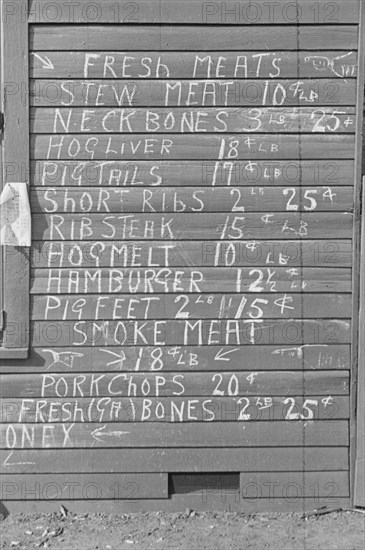 FRESH MEATS
STEW MEAT 10¢ LB
NECK BONES 3 LBS 25¢
HOG LIVER 18¢ LB
PIG TAILS 17¢ LB
SHORT RIBS 2 LB 25¢
RIB STEAK 15¢ LB
HOG MELT 10¢ LB
HAMBURGER 12½¢ LB
PIG FEET 2 LB 15¢
SMOKE MEAT
18¢ LB
PORK CHOPS 20¢
FRESH (GA) BONES 2 LB 25¢
ONEX